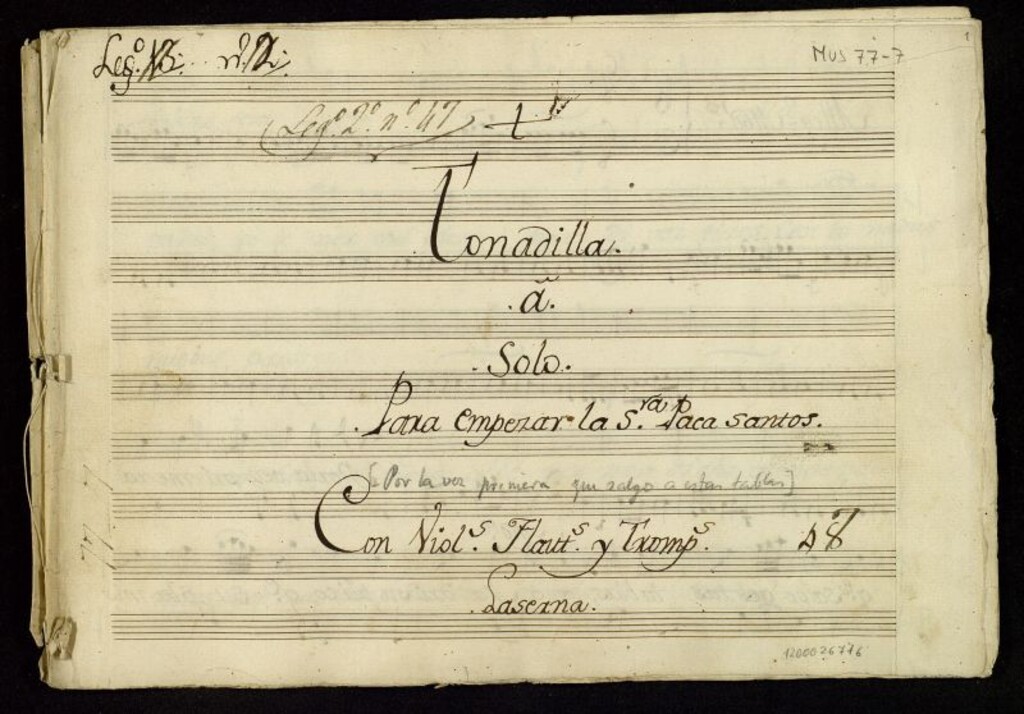 Leg.º 13. n.º 2.
MUS 77-7
1
(Leg.º 2.º n.º 47)
Tonadilla.
.á.
.Solo.
.Para empezar la S.ra Paca santos.
[Por la vez primera que salgo a estas tablas]
Con Viol.s Flaut.s y Tromp.s 48
.Laserna.
1200026776